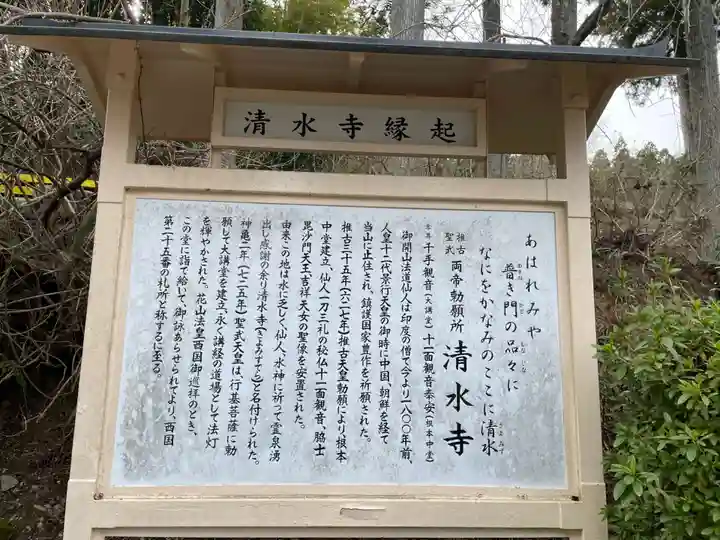 清水寺縁起
あはれみや
普き門の品々に
なにをかなみのここに清水
推古
聖武
両帝勅願所 清水寺
本尊 千手観音(大講堂)十一面観音奉安(根本中堂)
御開山法道仙人は印度の僧で今より一八〇〇年前、
人皇十二代景行天皇の御時に中国、朝鮮を経て
当山に止住され、鎮護国家豊作を祈願された。
推古三十五年(六二七年)推古天皇勅願により根本
中堂建立、仙人一刀三礼の秘仏十一面観音、脇士
毘沙門天王、吉祥天女の聖像を安置された。
由来この地は水に乏しく、仙人、水神に祈って霊泉湧
出し感謝の余り清水寺(きよみずでら)と名付けられた。
神亀二年(七二五年)聖武天皇は、行基菩薩に勅
願して大講堂を建立、永く講経の道場として法灯
を輝やかされた。花山法皇西国御巡禅のとき、
この堂に詣で給いて、御詠あらせられてより、西国
第二十五番の札所と称するに至る。